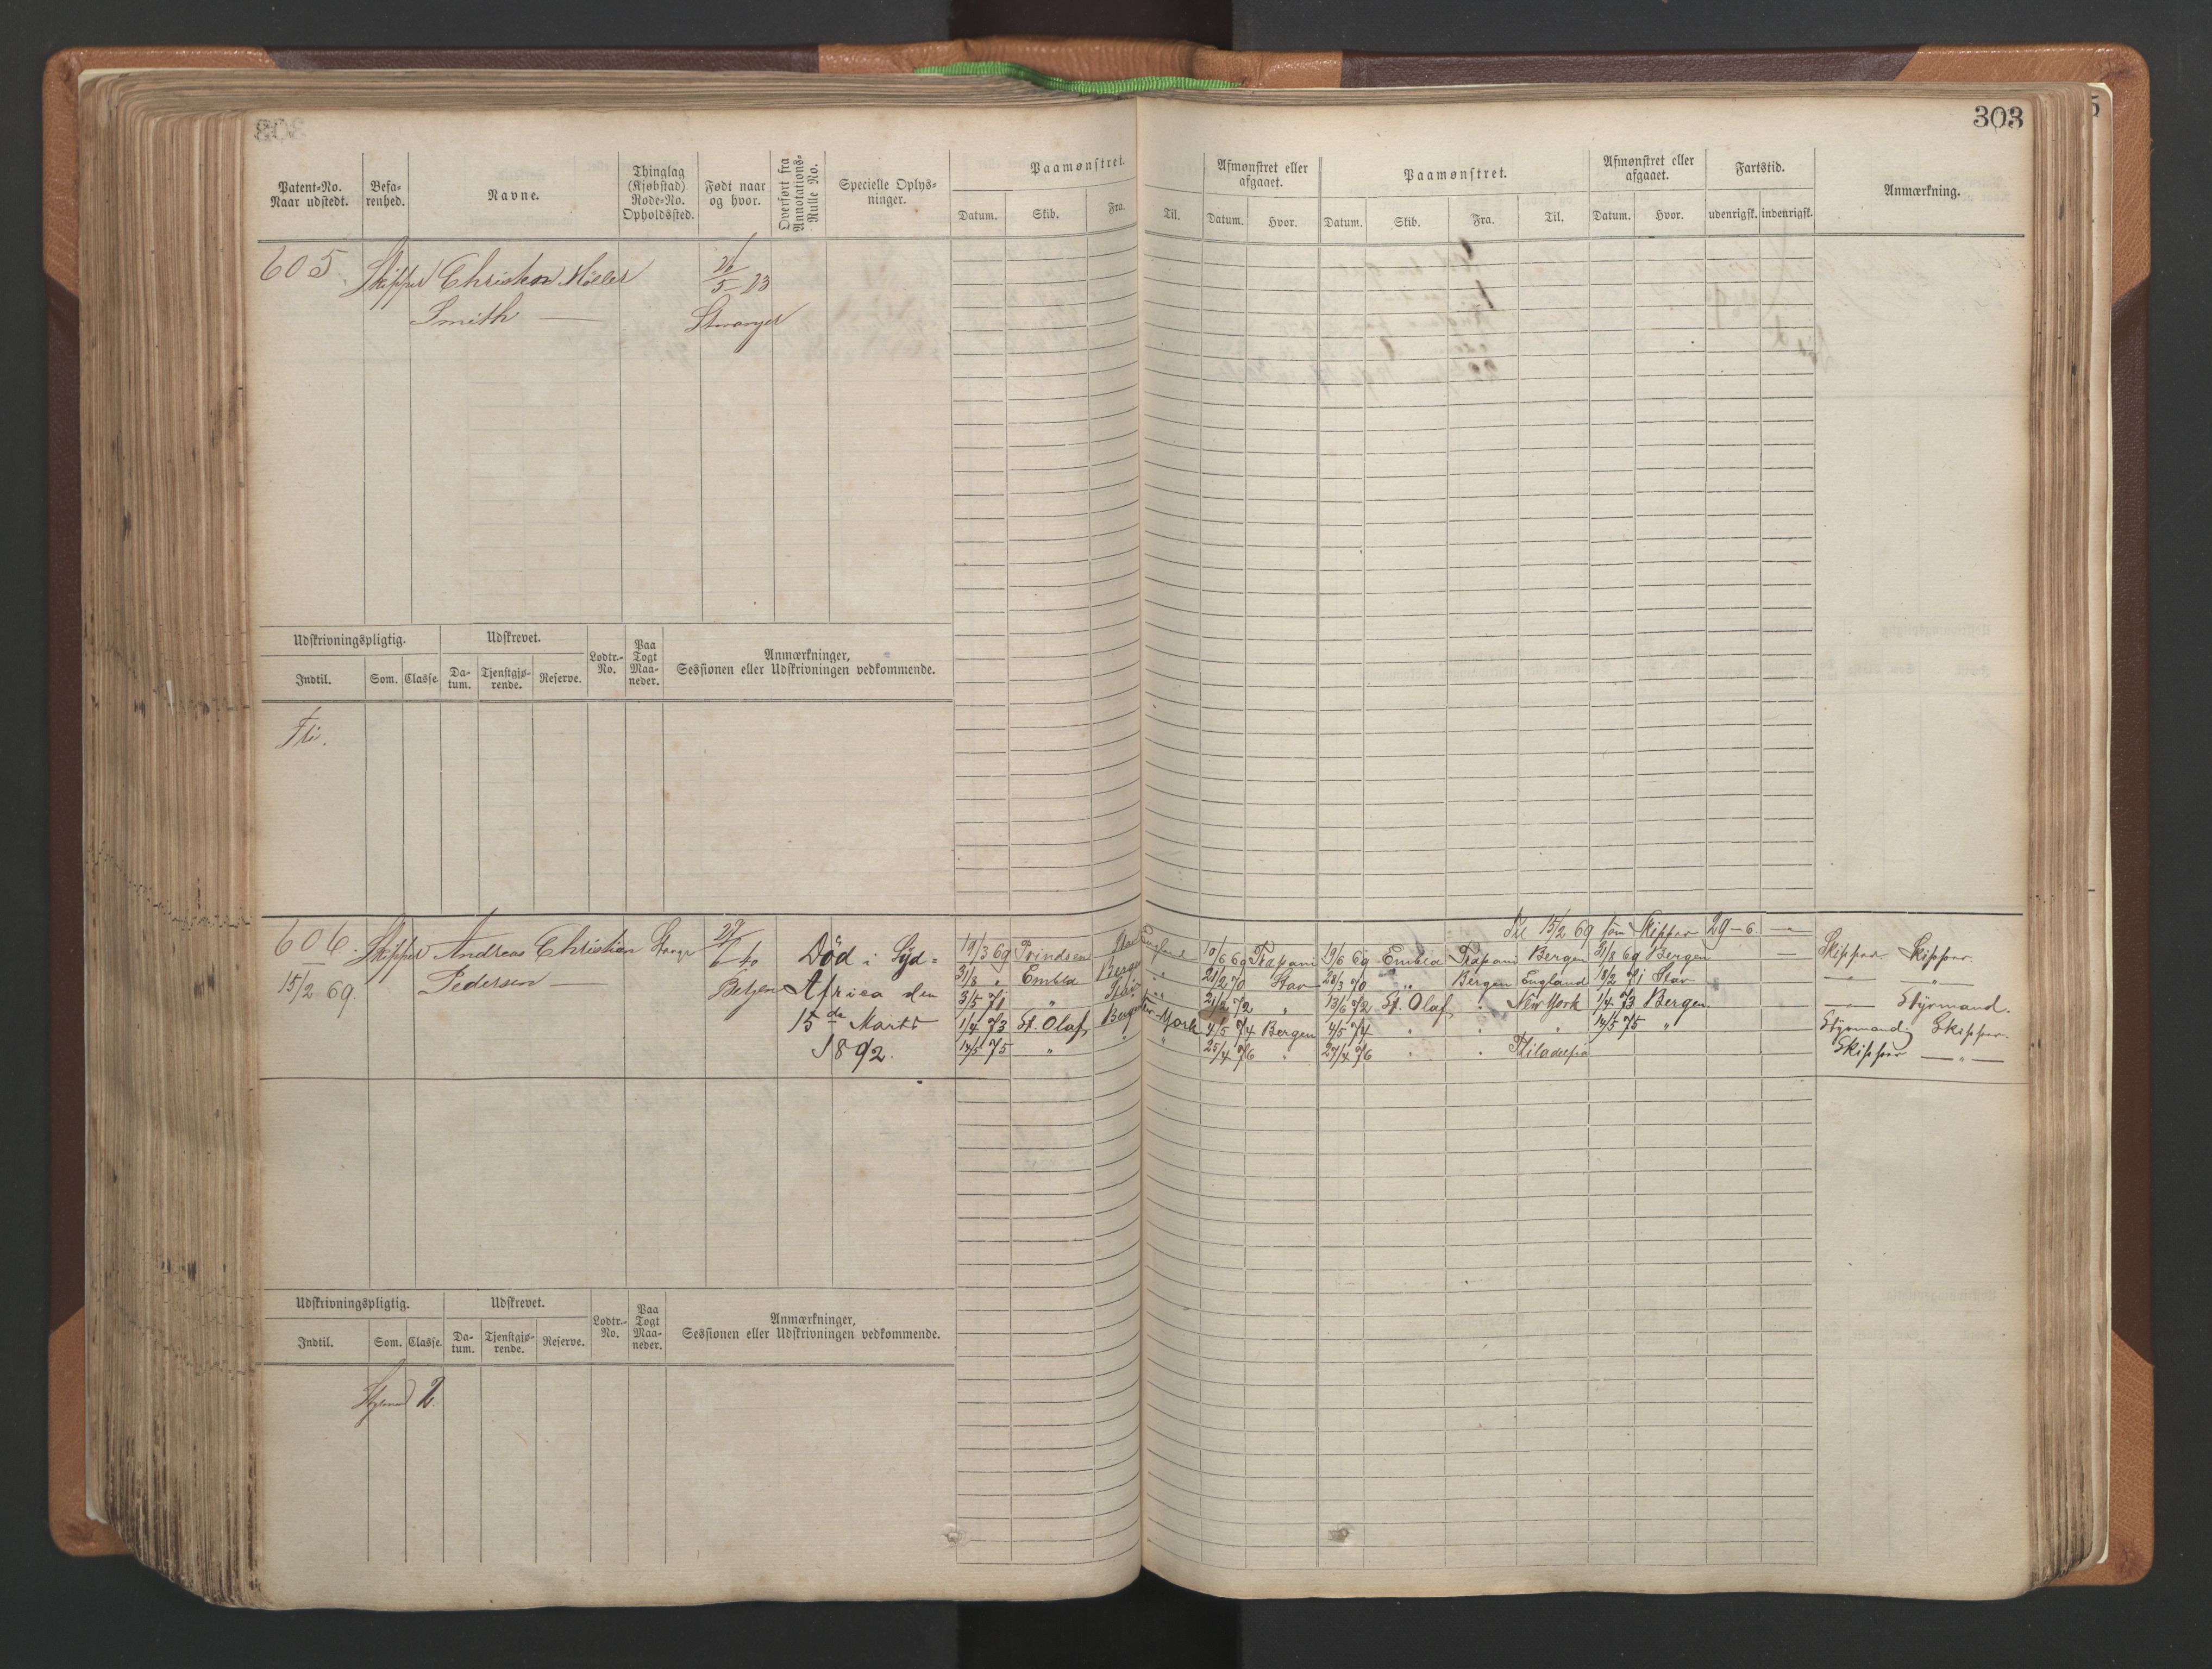 303
Patent-No. Naar udstedt.
Befa-renhed.
Navne.
Thinglag (Kjøbstad) Rode-No. Opholdssted.
Født naar og hvor.
Overført fra Annotations-Rulle No.
Specielle Oplys-ninger.
Paamønstret.
Datum. Skib. Fra. Til.
Afmønstret eller afgaaet.
Datum. Hvor.
Paamønstret.
Datum. Skib. Fra. Til.
Afmønstret eller afgaaet.
Datum. Hvor.
Fartstid.
udenrigsk. indenrigsk.
Anmærkning.
605 Skipper Christen Møller
Smith —
5 23
Stavanger
Udskrivningspligtig. Udskrevet. Lodtr.-No. Paa Togt Maa-neder. Anmærkninger, Sessionen eller Udskrivningen vedkommende.
Indtil. Som. Classe. Da-tum. Tjenstgjø-rende. Reserve.
606. Skipper Andreas Christian
15/2 69. Pedersen —
27/6 40
Bergen
Død i Syd=
Africa den
15de Marts
1892.
Til 15/2 69 som Skipper 29-6. —
19/3 69 Prindsen Stav England 10/6 69 Trapani 19/6 69 Embla Trapani Bergen 31/8 69 Bergen — Skipper Skipper.
31/8 " Embla Bergen " 21/2 70 Stav 28/3 70 " Bergen England 18/2 71 Stav — " —
3/5 71 " Stav " 21/2 72 " 13/6 72 St. Olaf " New York 1/4 73 Bergen — Styrmand.
1/4 73 St. Olaf Bergen New York 4/5 74 Bergen 4/5 74 " " " 14/5 75 " Styrmand Skipper.
14/5 75 " " " 25/4 76 " 27/4 76 " " Skipper — " —
Udskrivningspligtig. Udskrevet. Lodtr.-No. Paa Togt Maa-neder. Anmærkninger, Sessionen eller Udskrivningen vedkommende.
Indtil. Som. Classe. Da-tum. Tjenstgjø-rende. Reserve.
2.